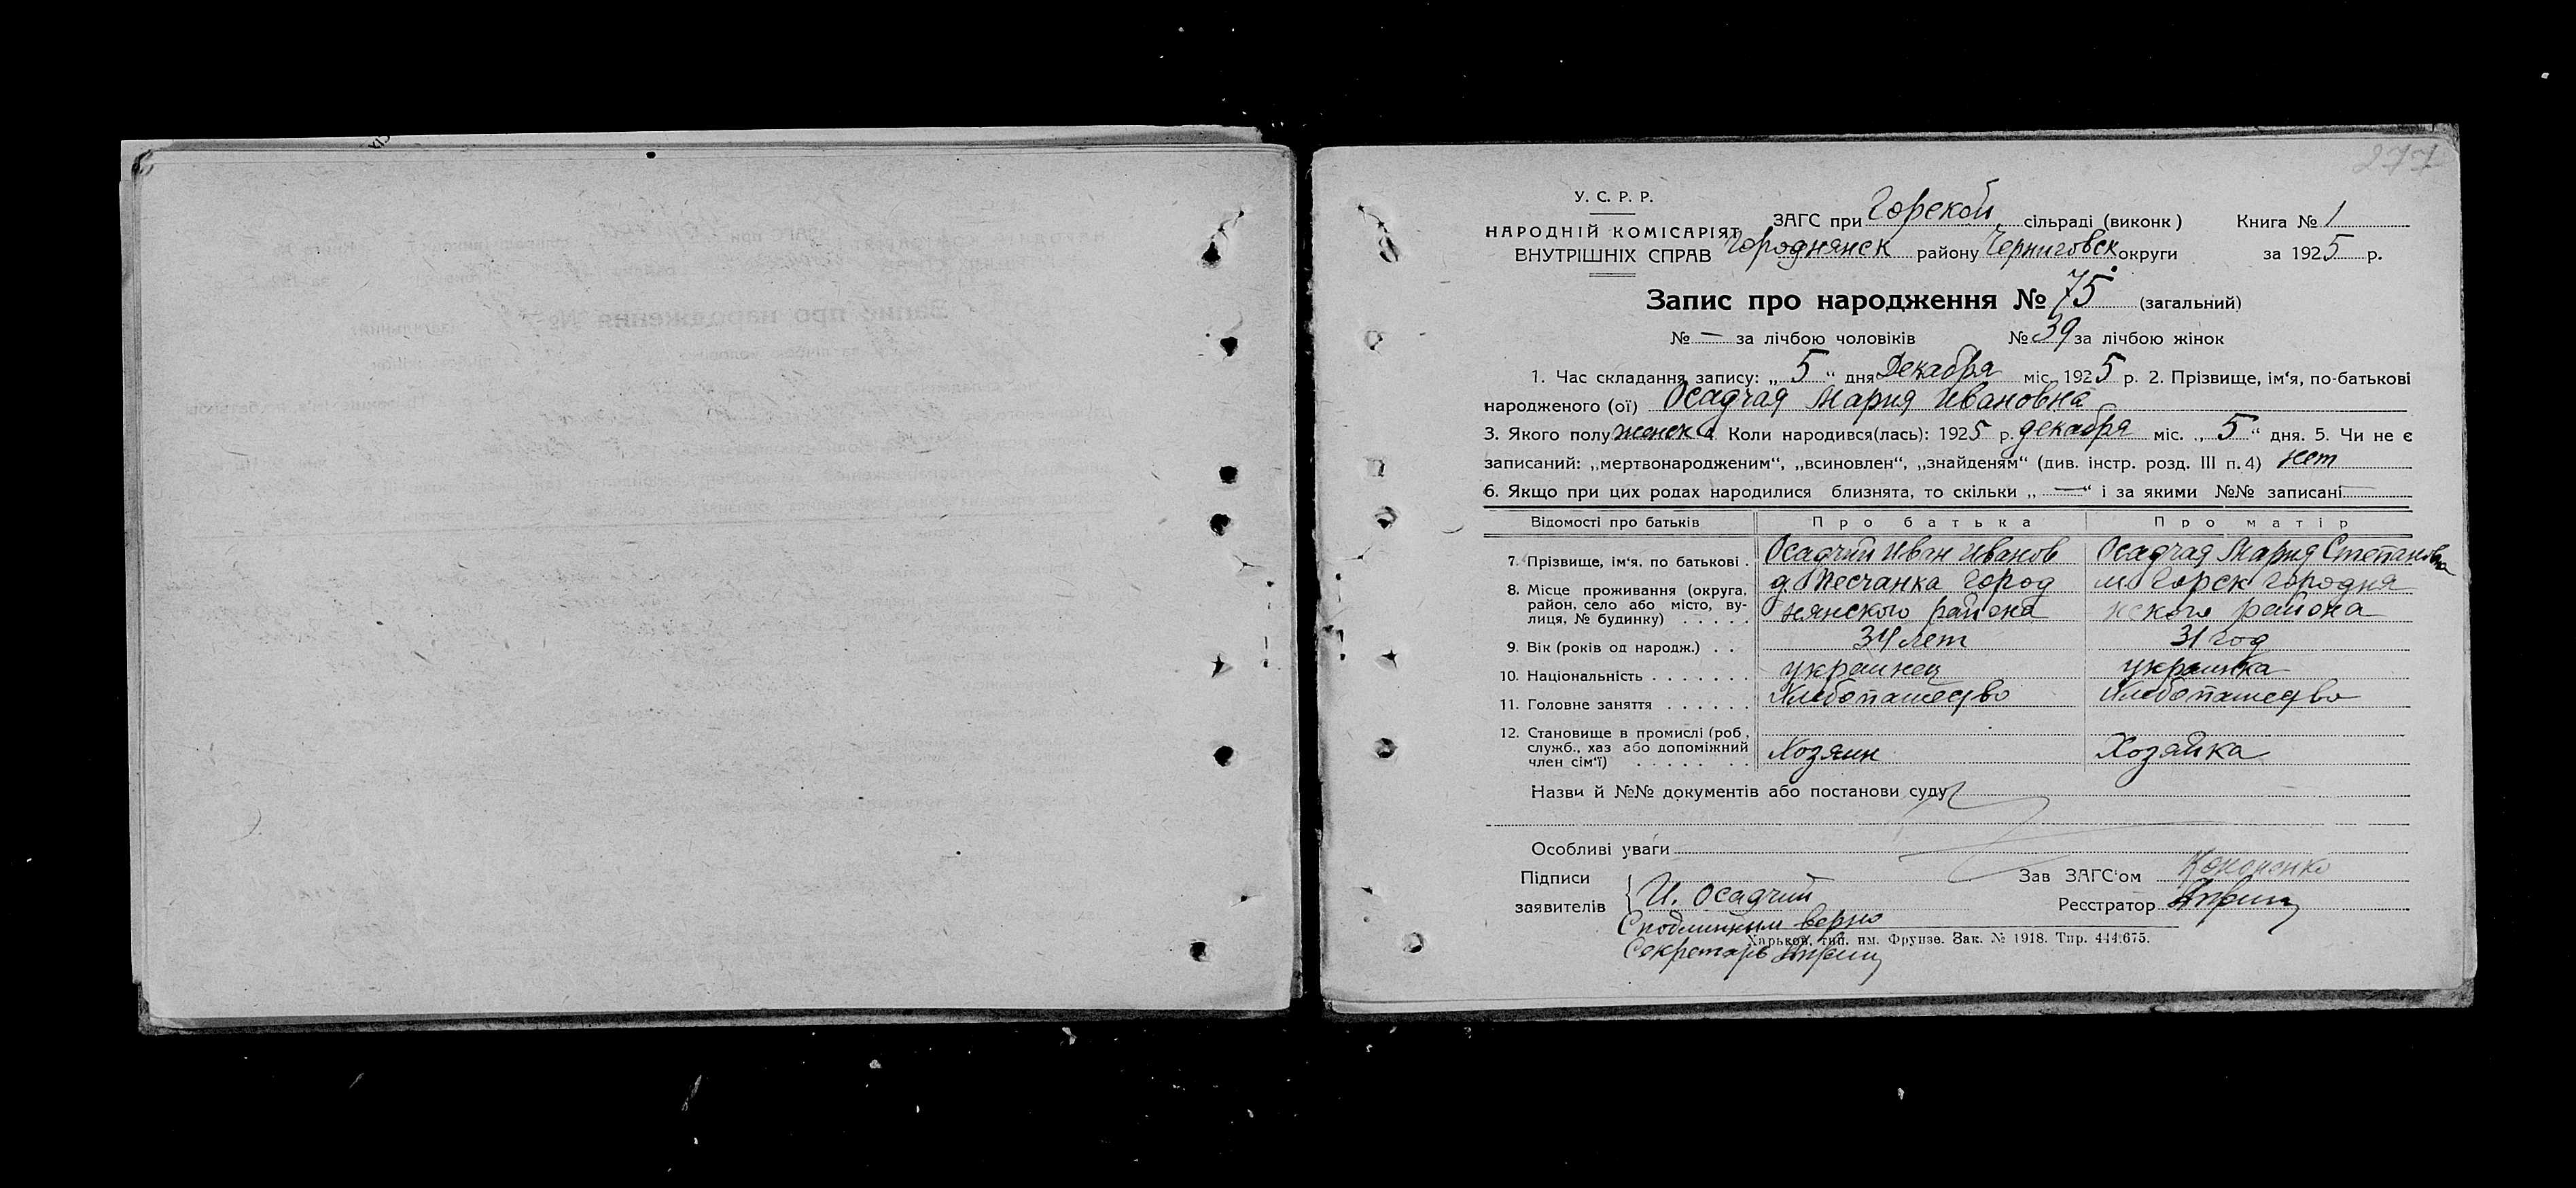 277
У. С. Р. Р.
НАРОДНІЙ КОМІСАРІЯТ
ВНУТРІШНІХ СПРАВ
ЗАГС при Горской сільраді (виконк)
Книга № 1
Городнянск району Черниговск округи
за 1925 р.
Запис про народження № 75 (загальний)
№ — за лічбою чоловіків № 39 за лічбою жінок
1. Час складання запису: „ 5 “ дня Декабря міс. 1925 р. 2. Прізвище, ім‘я, по-батькові
народженого (ої) Осадчая Мария Ивановна
3. Якого полу женск 4. Коли народився(лась): 1925 р. декабря міс. „ 5 “ дня. 5. Чи не є
записаний: „мертвонародженим“, „всиновлен“, „знайденям“ (див. інстр. розд. III п. 4) нет
6. Якщо при цих родах народилися близнята, то скільки „ — “ і за якими №№ записані
Відомості про батьків Про батька Про матір
7. Прізвище, ім‘я, по батькові . Осадчий Иван Иванов Осадчая Мария Степановна
8. Місце проживання (округа, д. Песчанка Город м. Горск Городня
район, село або місто, ву- нянского района нского района
лиця, № будинку) . . . . .
9. Вік (років од народж.) . . 34 лет 31 год
10. Національність . . . . . . . украинец украинка
11. Головне заняття . . . . . . Хлебопашество Хлебопашество
12. Становище в промислі (роб.,
служб., хаз або допоміжний Хозяин Хозяйка
член сім‘ї) . . . . . . .
Назви й №№ документів або постанови суду
Особливі уваги
Підписи
заявителів И. Осадчий
Зав ЗАГС‘ом Кононенко
Реєстратор
С подлинным верно
Харьков, тип. им. Фрунзе. Зак. № 1918. Тир. 444.675.
Секретарь